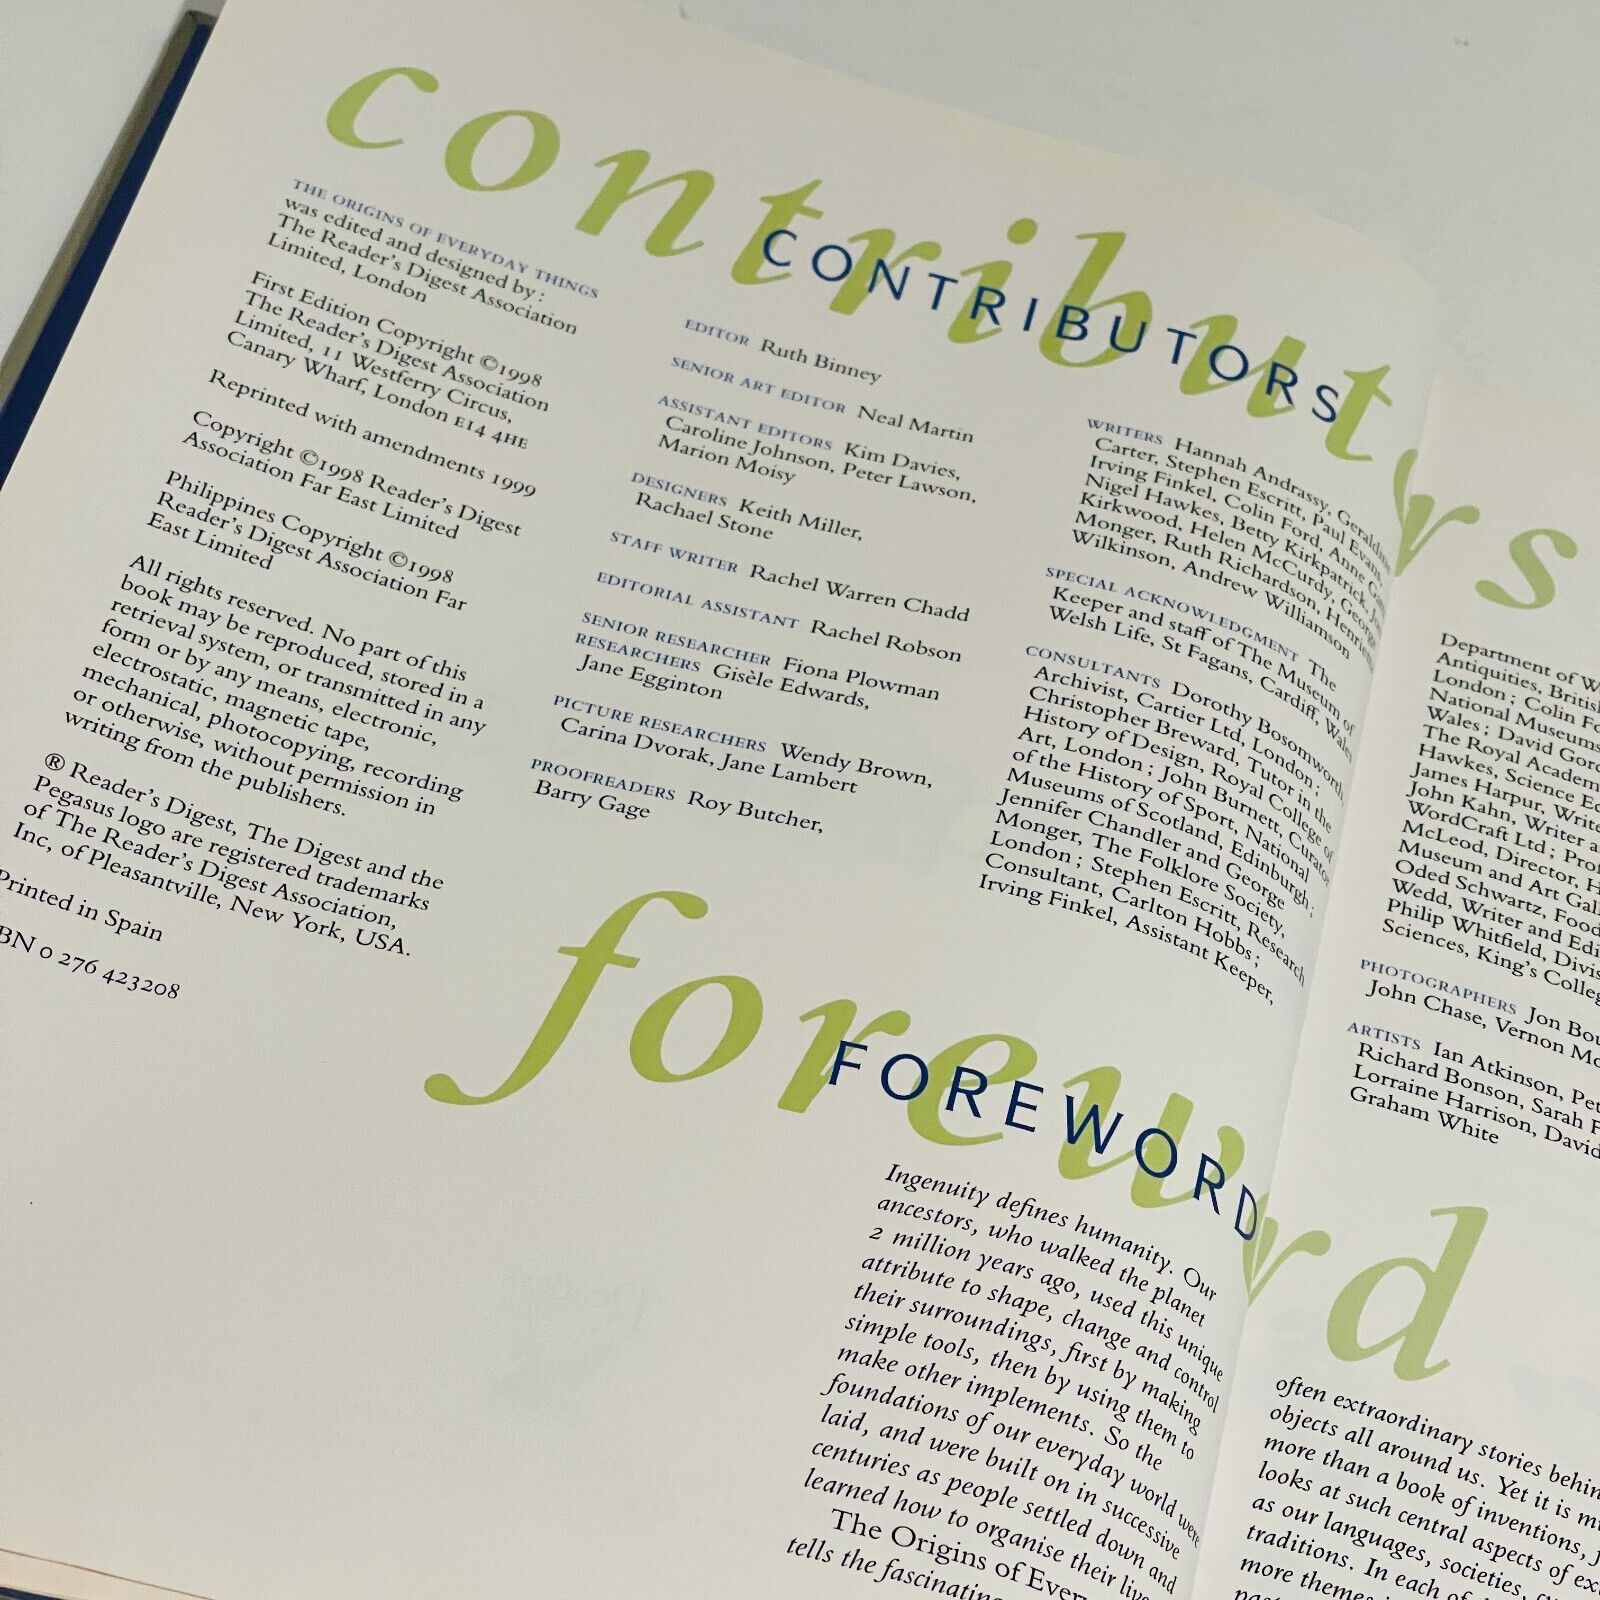 contributors
CONTRIBUTORS
THE ORIGINS OF EVERYDAY THINGS
was edited and designed by:
The Reader's Digest Association
Limited, London
First Edition Copyright ©1998
The Reader's Digest Association
Limited, 11 Westferry Circus,
Canary Wharf, London E14 4HE
Reprinted with amendments 1999
Copyright ©1998 Reader's Digest
Association Far East Limited
Philippines Copyright ©1998
Reader's Digest Association Far
East Limited
All rights reserved. No part of this
book may be reproduced, stored in a
retrieval system, or transmitted in any
form or by any means, electronic,
electrostatic, magnetic tape,
mechanical, photocopying, recording
or otherwise, without permission in
writing from the publishers.
® Reader's Digest, The Digest and the
Pegasus logo are registered trademarks
of The Reader's Digest Association,
Inc, of Pleasantville, New York, USA.
Printed in Spain
BN 0 276 423208
EDITOR Ruth Binney
SENIOR ART EDITOR Neal Martin
ASSISTANT EDITORS Kim Davies,
Caroline Johnson, Peter Lawson,
Marion Moisy
DESIGNERS Keith Miller,
Rachael Stone
STAFF WRITER Rachel Warren Chadd
EDITORIAL ASSISTANT Rachel Robson
SENIOR RESEARCHER Fiona Plowman
RESEARCHERS Gisèle Edwards,
Jane Egginton
PICTURE RESEARCHERS Wendy Brown,
Carina Dvorak, Jane Lambert
PROOFREADERS Roy Butcher,
Barry Gage
WRITERS Hannah Andrassy, Geraldine
Carter, Stephen Escritt, Paul Evans,
Irving Finkel, Colin Ford, Anne
Nigel Hawkes, Betty Kirkpatrick,
Kirkwood, Helen McCurdy, George
Monger, Ruth Richardson, Henrietta
Wilkinson, Andrew Williamson
SPECIAL ACKNOWLEDGMENT The
Keeper and staff of The Museum of
Welsh Life, St Fagans, Cardiff, Wales
CONSULTANTS Dorothy Bosomworth,
Archivist, Cartier Ltd, London;
Christopher Breward, Tutor in the
History of Design, Royal College of
Art, London; John Burnett, Curator
of the History of Sport, National
Museums of Scotland, Edinburgh;
Jennifer Chandler and George
Monger, The Folklore Society,
London; Stephen Escritt, Research
Consultant, Carlton Hobbs;
Irving Finkel, Assistant Keeper,
Department of W
Antiquities, British
London; Colin Fo
National Museums
Wales; David Gord
The Royal Academ
Hawkes, Science Ed
James Harpur, Write
John Kahn, Writer a
WordCraft Ltd; Prof
McLeod, Director, H
Museum and Art Gall
Oded Schwartz, Food
Wedd, Writer and Edi
Philip Whitfield, Divis
Sciences, King's Colleg
PHOTOGRAPHERS Jon Bou
John Chase, Vernon Mo
ARTISTS Ian Atkinson, Pet
Richard Bonson, Sarah F
Lorraine Harrison, David
Graham White
foreword
FOREWORD
Ingenuity defines humanity. Our
ancestors, who walked the planet
2 million years ago, used this unique
attribute to shape, change and control
their surroundings, first by making
simple tools, then by using them to
make other implements. So the
foundations of our everyday world were
laid, and were built on in successive
centuries as people settled down and
learned how to organise their live
The Origins of Every
tells the fascinating
often extraordinary stories behin
objects all around us. Yet it is mu
more than a book of inventions,
looks at such central aspects of ex
as our languages, societies,
traditions. In each of
more themes